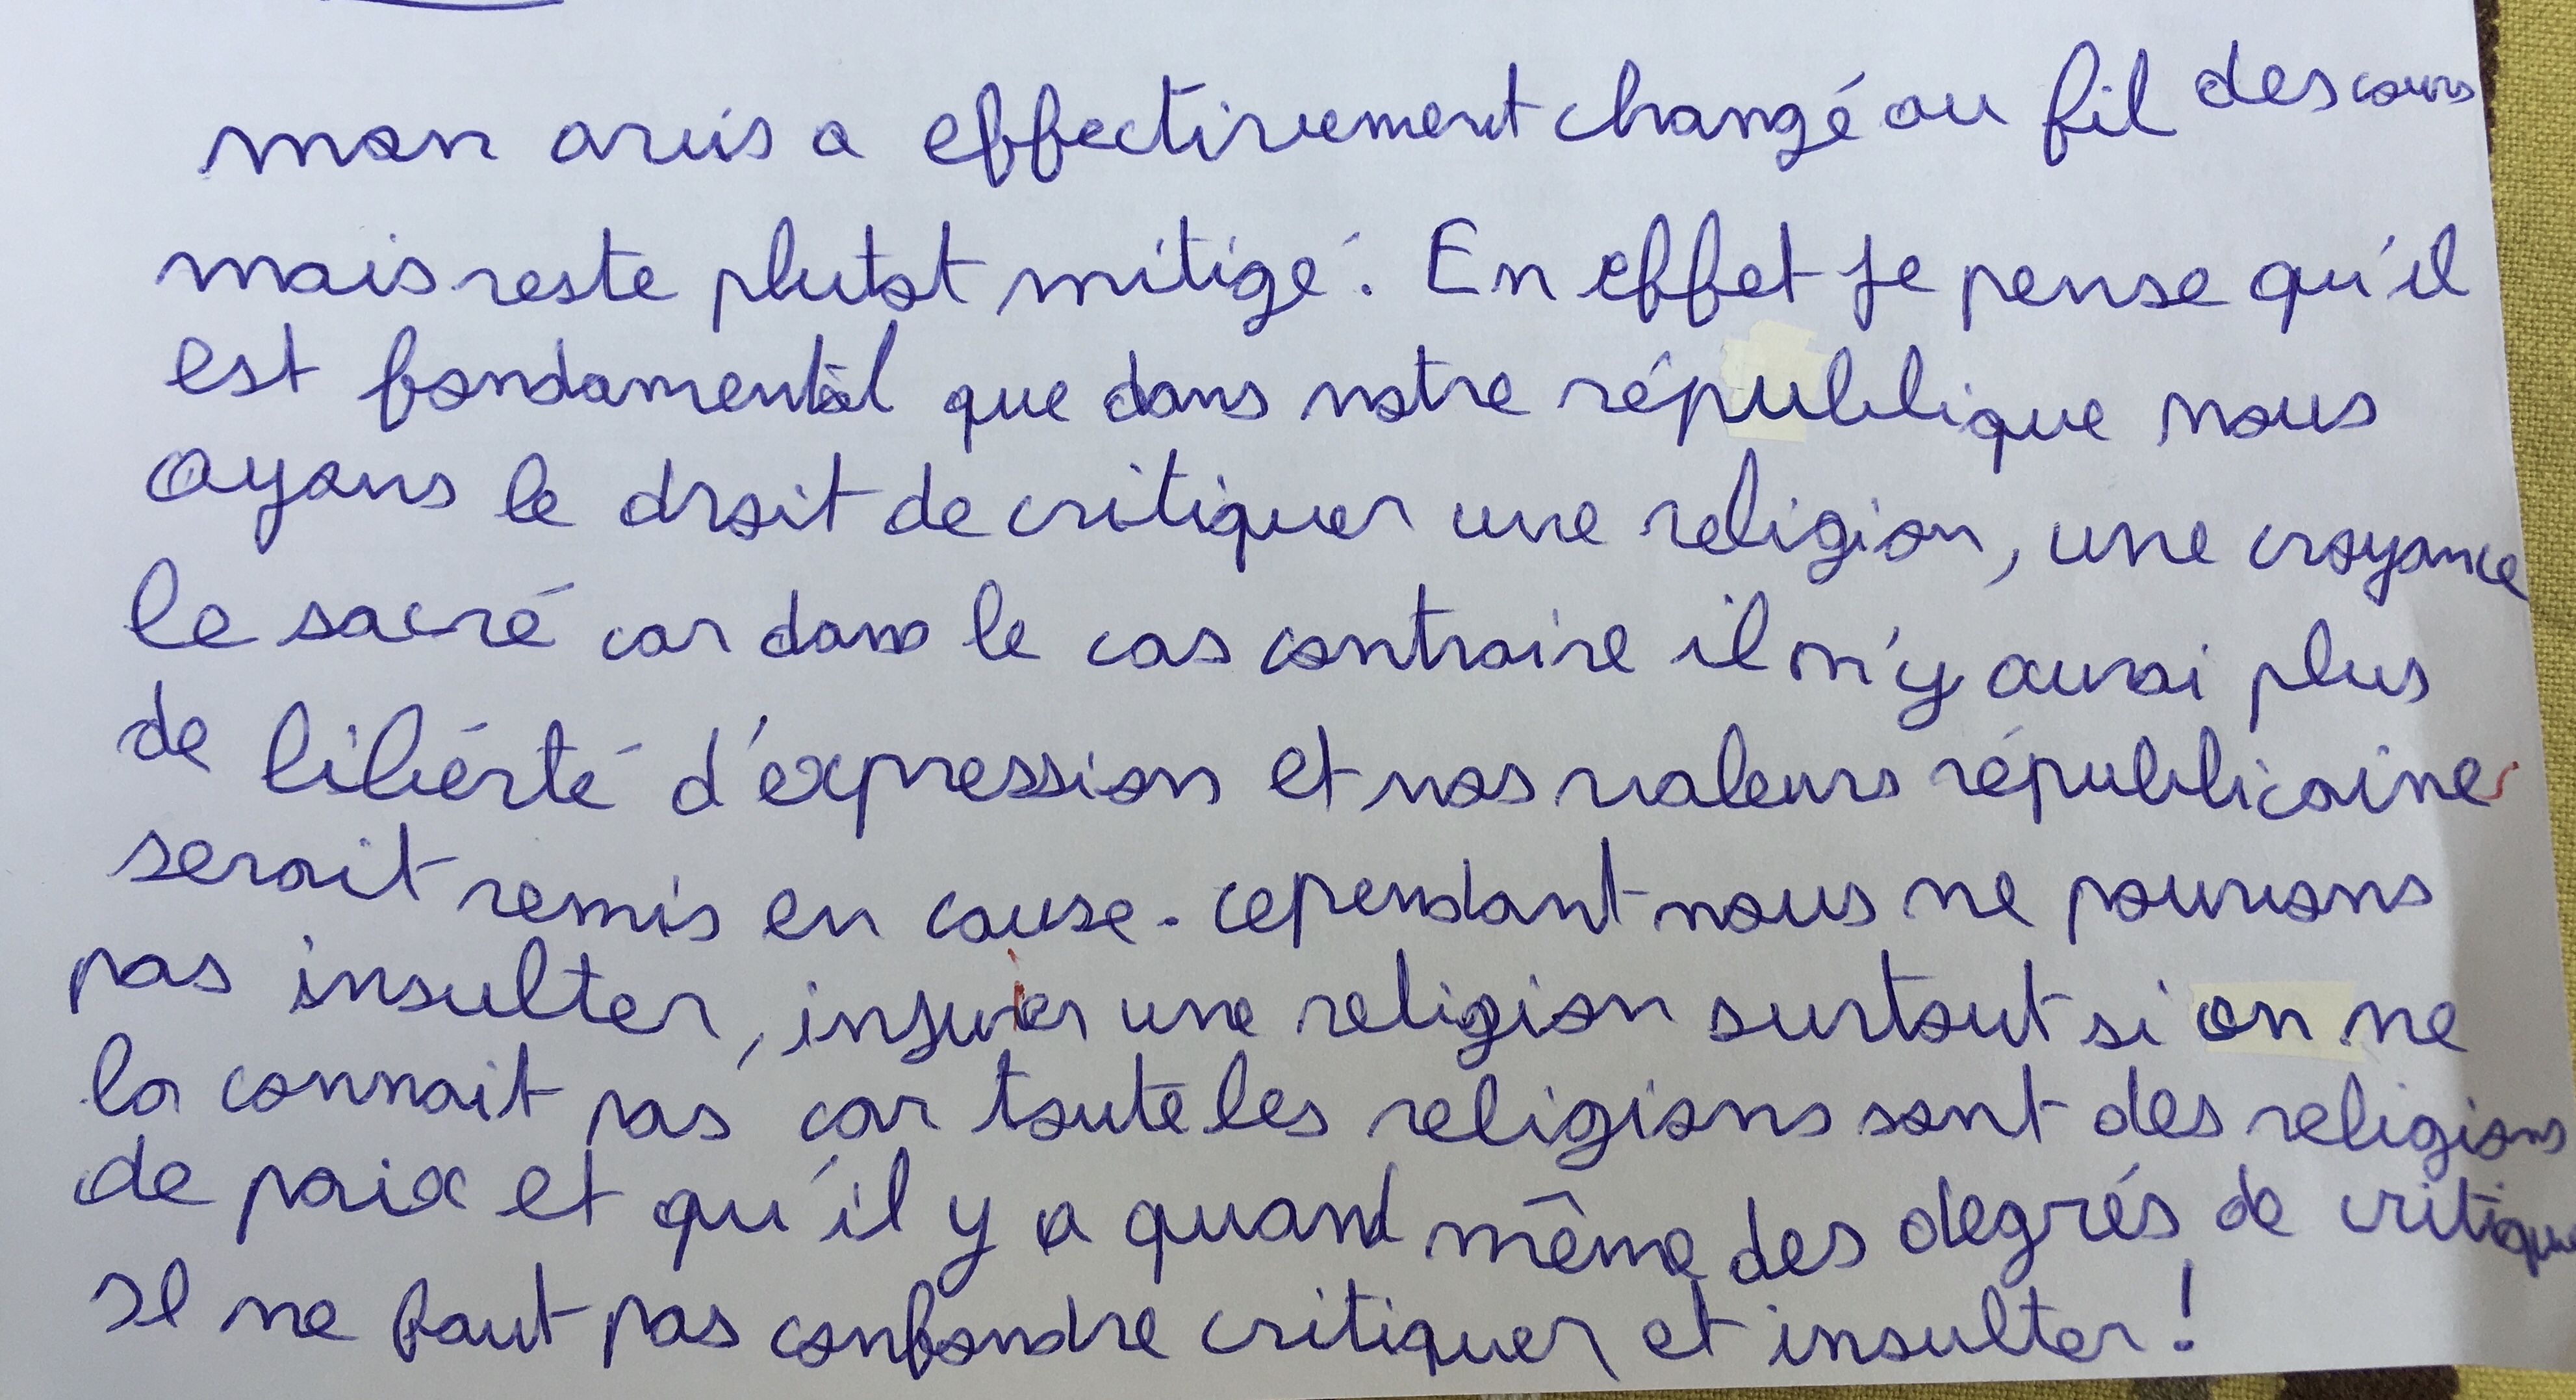 mon avis a effectivement changé au fil des cours
mais reste plutot mitigé. En effet je pense qu'il
est fondamental que dans notre république nous
ayons le droit de critiquer une religion, une croyance
le sacré car dans le cas contraire il n'y aurai plus
de libérté d'expression et nos valeurs républicaines
serait remis en cause. cependant nous ne pouvons
pas insulter, injurier une religion surtout si on ne
la connait pas car toute les religions sont des religions
de paix et qu'il y a quand même des degrés de critique
Il ne faut pas confondre critiquer et insulter !